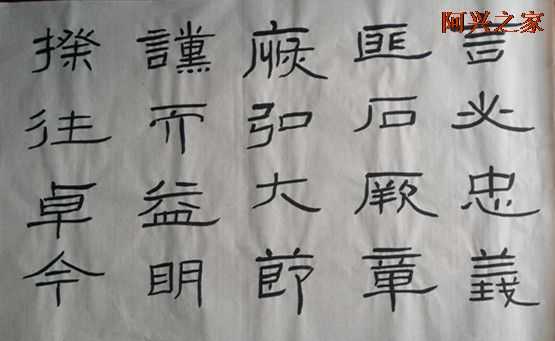 阿兴之家
言必忠義
匪石厥章
弘大節
讜而益明
揆往卓今